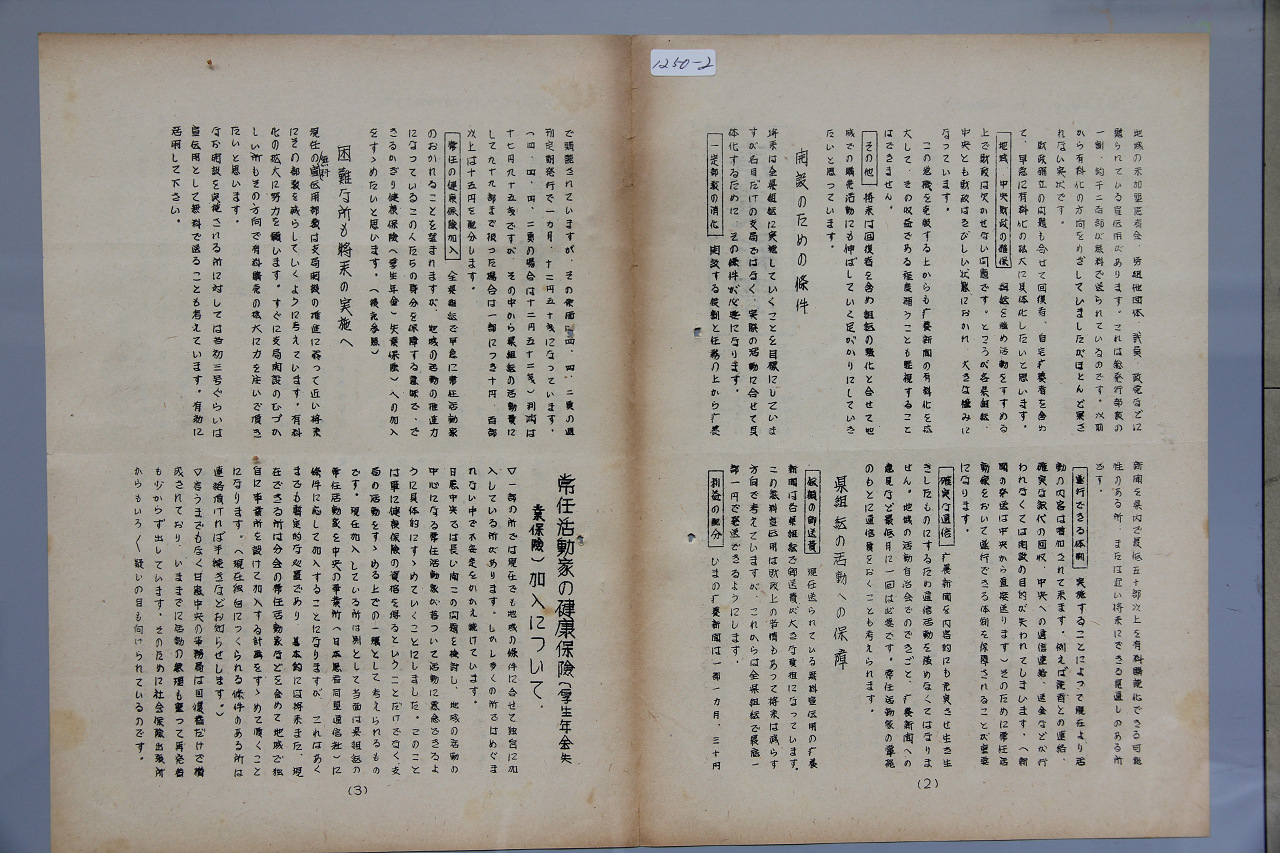 1250-2
地域の未加盟患者会、労組他団体、議員、政党などに
贈られている宣伝用があります。これは総発行部数の
一割、約千二百部が無料で送られているのです。以前
から有料化の方向をめざしていましたがほとんど実さ
れない実状です。
財政確立の問題も合せて回復者、自宅療養者を含め
て、早急に有料化の拡大に具体化したいと思います。
地域、中央財政の確保 組織を進め活動をすすめる
上で財政は欠かせない問題です。ところが各県組織、
中央とも財政はきびしい状態におかれ、大きな悩みに
なっています。
この危機を克服する上からも療養新聞の有料化を拡
大して、その収益である程度補うことも軽視すること
はできません。
その他 将来は回復者を含め組織の強化と合せて地
域での購売活動にも伸ばしていく足がかりにしていき
たいと思っています。
開設のための條件
将来は全県組織に実施していくことを目標にしていま
すが名目だけの支局ではなく、実際の活動に合せて具
体化するために、その條件が必要になります。
一定部数の消化 開設する役割と任務の上から療養
新聞を県内で最低五十部以上を有料購読化できる可能
性のある所、または近い将来にできる見通しのある所
です。
遂行できる体制 実施することによって現在より活
動の内容は増加されて来ます。例えば読者との連絡、
確実な紙代の回収、中央への通信連絡、送金などが行
われなくては開設の目的が失われてしまいます。（新
聞の発送は中央から直接送ります）そのために常任活
動家をおいて遂行できる体制を保障されることが重要
になります。
確実な通信 療養新聞を内容的にも充実させ生き生
きしたものにするため通信活動を強めなくてはなりま
せん。地域の活動自治会でのできごと、療養新聞への
意見など最低月に一回は必要です。常任活動家の常範
のもとに通信員をおくことも考えられます。
県組織の活動への保障
紙類の郵送費 現在送られている無料宣伝用の療養
新聞は各県組織で郵送費が大きな負担になっています。
この無料宣伝用は財政上の事情もあって将来は減らす
方向で考えていますが、これからは全県組織で最低一
部一円で発送できるようにします。
利益の配分 ひまの療養新聞は一部一カ月、三十円
(2)
で購読されていますが、その原価は四、四、二頁の週
刊定期発行で一カ月、十二円五十銭になっています。
（四、四、四、二頁の場合は十二円五十二銭）利潤は
十七円九十五銭ですが、その中から県組織の活動費に
して九十九部まで扱った場合は一部につき十円、百部
以上は十五円を配分します。
常任の健康保険加入 全県組織で早急に常任活動家
のおかれることを望まれますが、地域の活動の推進力
になっているこの人たちの身分を保障する意味で、で
きるかぎり健康保険（厚生年金）失業保険）への加入
をすゝめたいと思います。（後九参照）
困難な所も将来の実施へ
現任の無料宣伝用部数は支局開設の推進に弱って近い将来
にその部数を減らしていくように考えています。有料
化の拡大に努力を願います。すぐに支局開設のむづか
しい所もその方向で有料購売の拡大に力を注いで頂き
たいと思います。
なお開設を実施される所に対しては当初三号ぐらいは
宣伝用として無料で送ることも考えています。有効に
活用して下さい。
常任活動家の健康保険（厚生年金失
業保険）加入について．
▽一部の所では現在でも地域の條件に合せて独自に加
入している所があります。しかし多くの所ではめぐま
れない中で不安定をかかえ続けています。
日患中央では長い間この問題を検討し、地域の活動の
中心になる常任活動家が落ついて活動に専念できるよ
うに具体的にすゝめていくことにしました。このこと
は単に健康保険の資格を得るということだけでなく支
局の活動をすゝめる上での一環として考えられるもの
です。現在加入している所は別として当面は県組織の
常任活動家を中央の事業所（日本患者同盟通信社）に
條件に応じて加入することになりますが、これはあく
までも暫定的な処置であり、基本的には将来また、現
在できる所は分会の常任活動家などを含めて地域で独
自に事業所を設けて加入する計画をすゝめて頂くこと
になります。（現在独自につくられる條件のある所は
連絡頂ければ手続きなどお知らせします。）
▽言うまでもなく日患中央の事務局は回復者だけで構
成されており、いままでに活動の無理も重って再発者
も少からず出しています。そのために社会保険出張所
からもいろ〱疑いの目も向けられているのです。
(3)